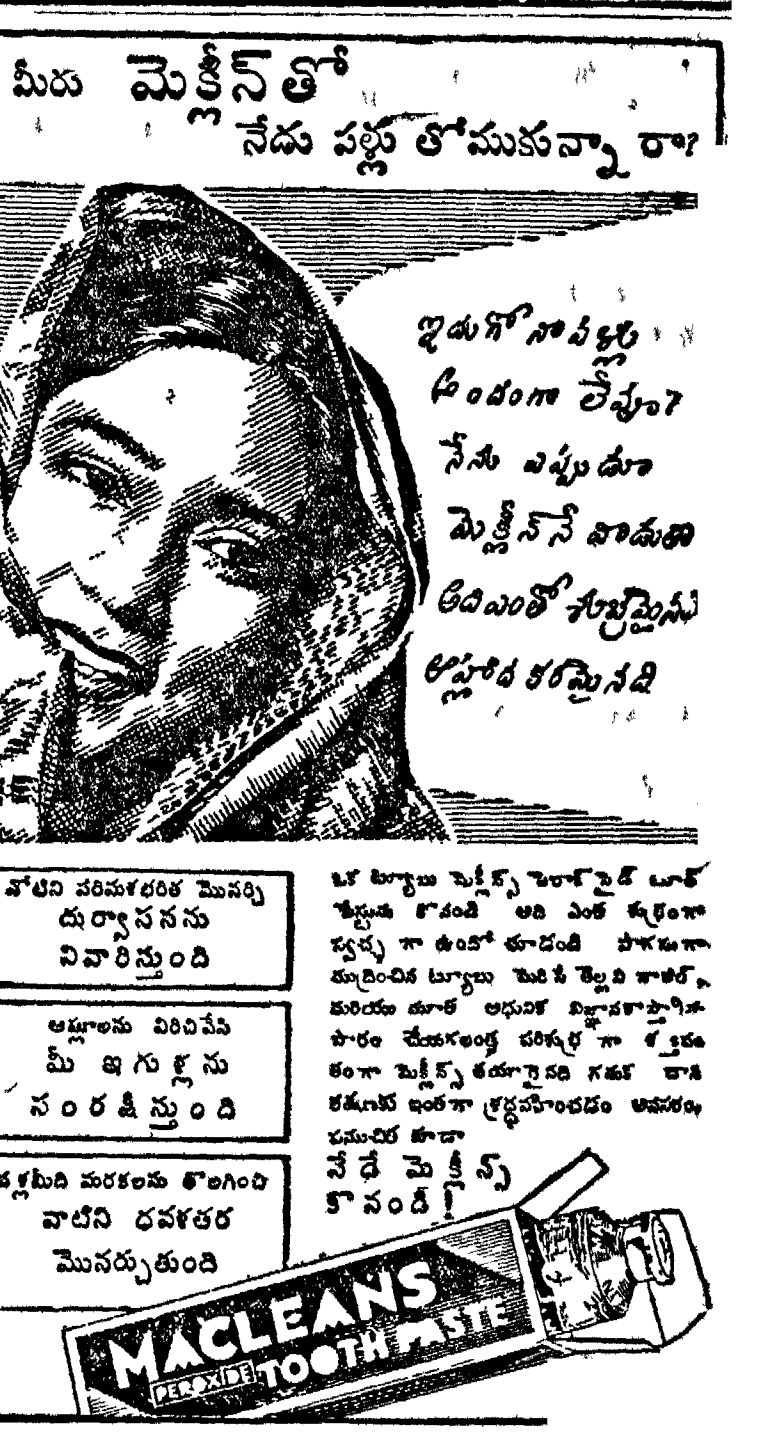 మీరు మెక్లీన్‌తో
నేడు పళ్లు తోముకున్నారా?
ఇదుగో నా పళ్లు
అందంగా లేవూ?
నేను ఎప్పుడూ
మెక్లీన్‌నే వాడుతా
అది ఎంతో శుభ్రమైనది
ఆహ్లాద కరమైనది
నోటిని పరిమళభరిత మొనర్చి
దుర్వాసనను
నివారిస్తుంది
ఆమ్లాలను విరిచివేసి
మీ ఇగుళ్లను
సంరక్షిస్తుంది
పళ్లమీది మరకలను తొలగించి
వాటిని ధవళతర
మొనర్చుతుంది
ఒక ట్యూబు మెక్లీన్స్ పెరాక్సైడ్ టూత్
పేస్టును కొనండి అది ఎంత
స్వచ్ఛంగా ఉందో చూడండి
ముద్రించిన ట్యూబు మెరిసే తెల్లని
మరియు మూత ఆధునిక
చేయగలంత
మెక్లీన్స్ తయారైనది గనుక దాని
ఇంతగా శ్రద్ధవహించడం అవసరం,
సముచిత కూడా
నేడే మెక్లీన్స్
కొనండి!
MACLEANS
PEROXIDE TOOTH PASTE